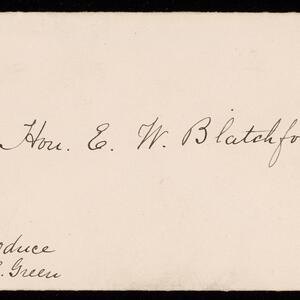 Hon. E. W. Blatchfo
oduce
. Green